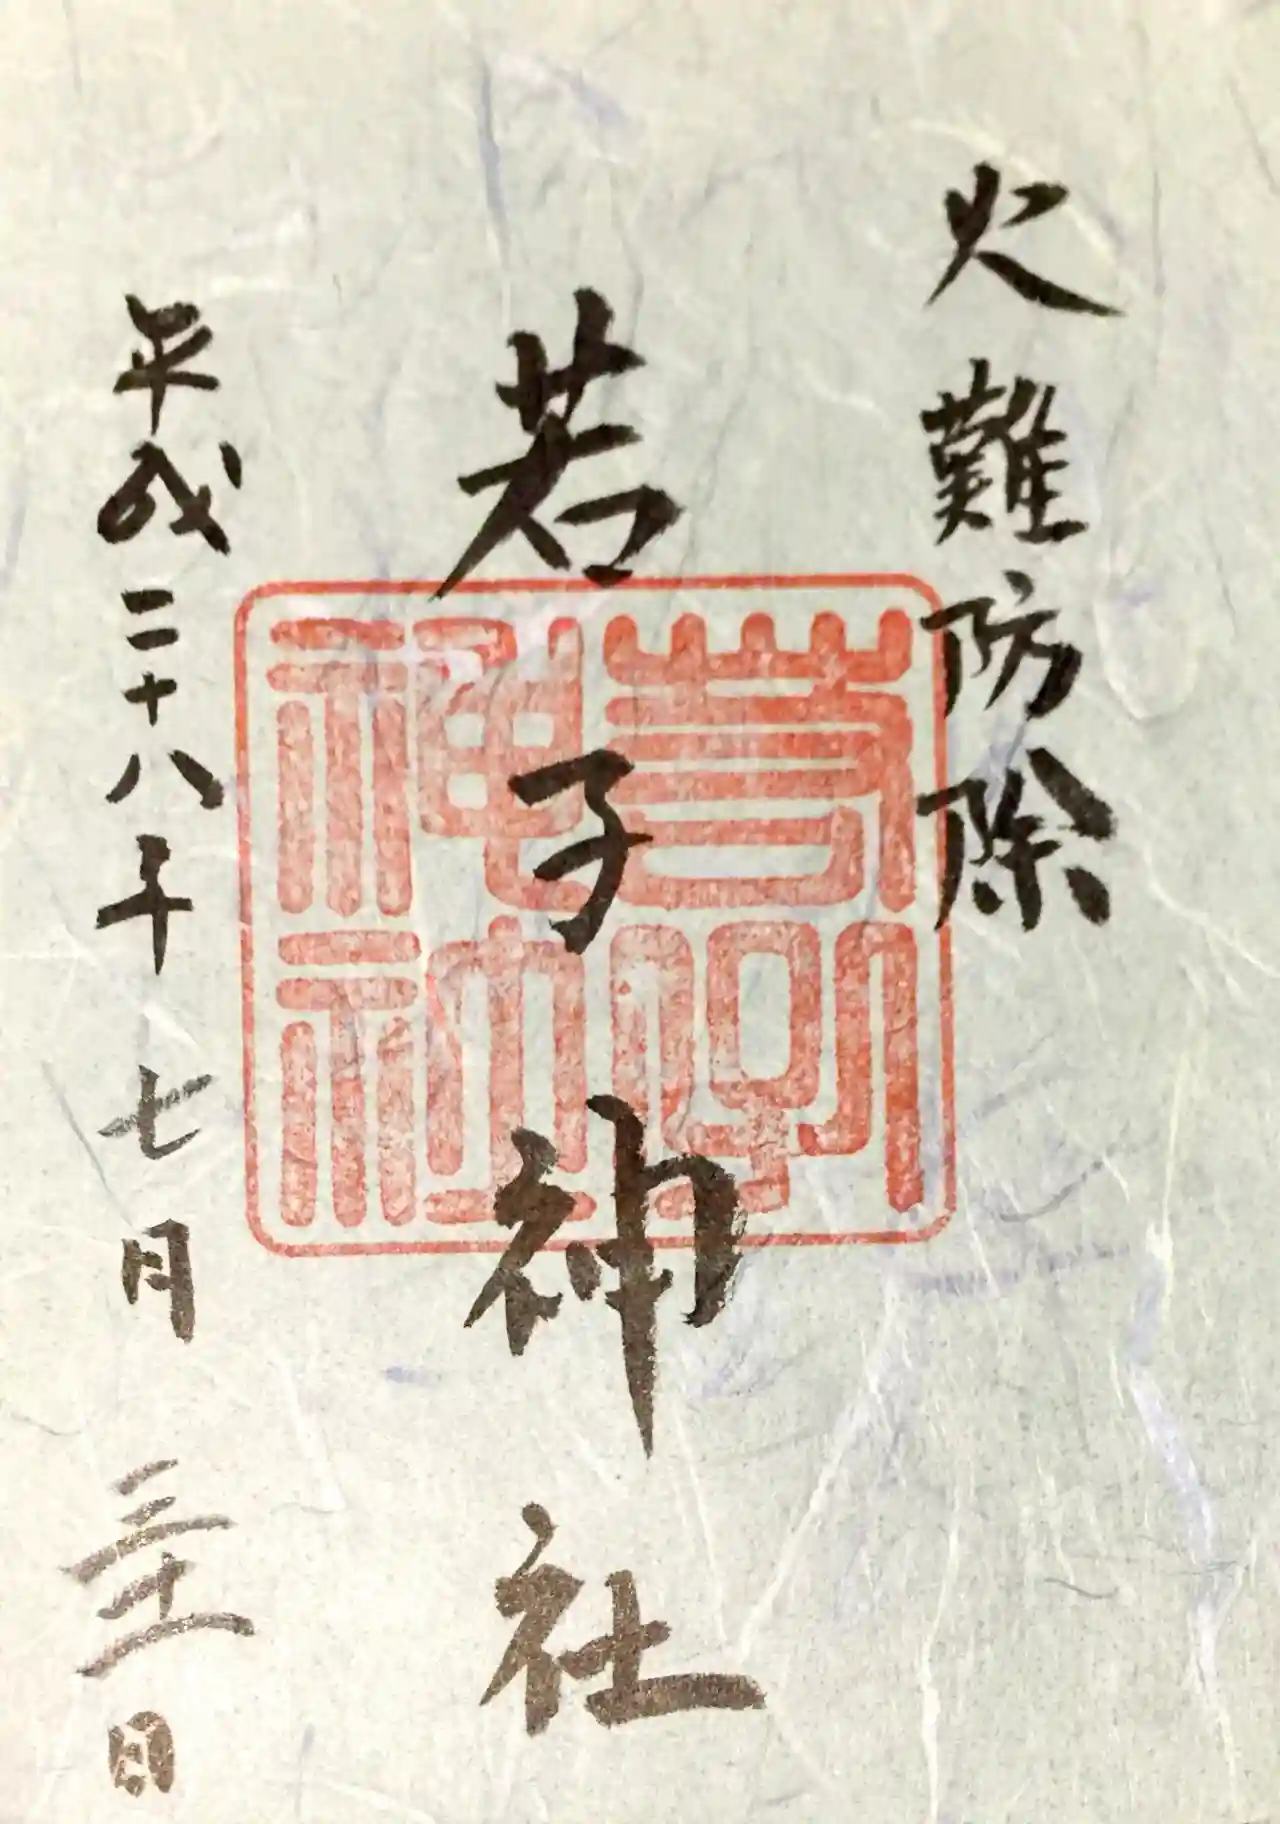 火難防除
若子神社
平成二十八年七月三十一日
神社